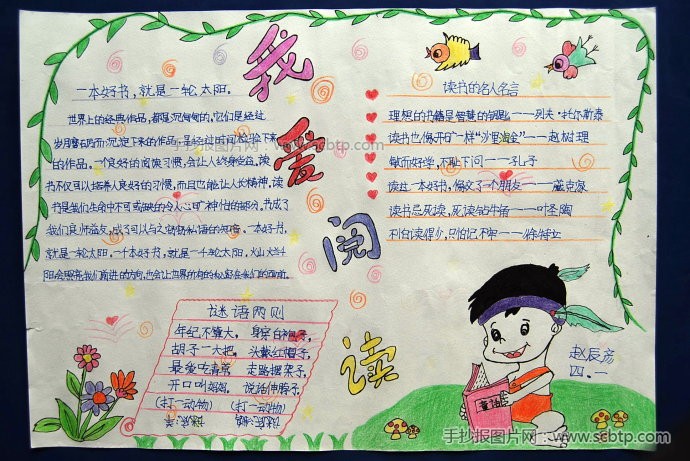 我爱阅读
一本好书，就是一轮太阳。
世界上的经典作品，都是沉甸甸的，它们是经过
岁月磨砺而沉淀下来的作品，是经过时间检验下来
的作品。一个良好的阅读习惯，会让人终身受益。读
书不仅可以培养人良好的习惯，而且也能让人长精神。读
书是我们生命中不可或缺的令人心旷神怡的部分。书成了
我们良师益友，成了可以与之窃窃私语的知音。一本好书，
就是一轮太阳，一十本好书，就是一十轮太阳，火山火海
阳会照亮我们前进的方向，也会让世界所有的秘密在我们的面前。
读书的名人名言
理想的书籍是智慧的钥匙——列夫·托尔斯泰
读书也像开矿一样“沙里淘金”——赵树理
敏而好学，不耻下问——孔子
读过一本好书，像交了个朋友——臧克家
读书忌死读，死读钻牛角——叶圣陶
不怕读得少，只怕记不牢——徐特立
谜语两则
年纪不算大， 身穿白袍子，
胡子一大把， 头戴红帽子，
最爱吃青草 走路摆架子，
开口叫妈妈。 说话伸脖子。
(打一动物) (打一动物)
童话
赵辰彦
四.一
手抄报图片网：www.scbtp.com
手抄报图片网：www.scbtp.com
手抄报图片网：www.scbtp.com